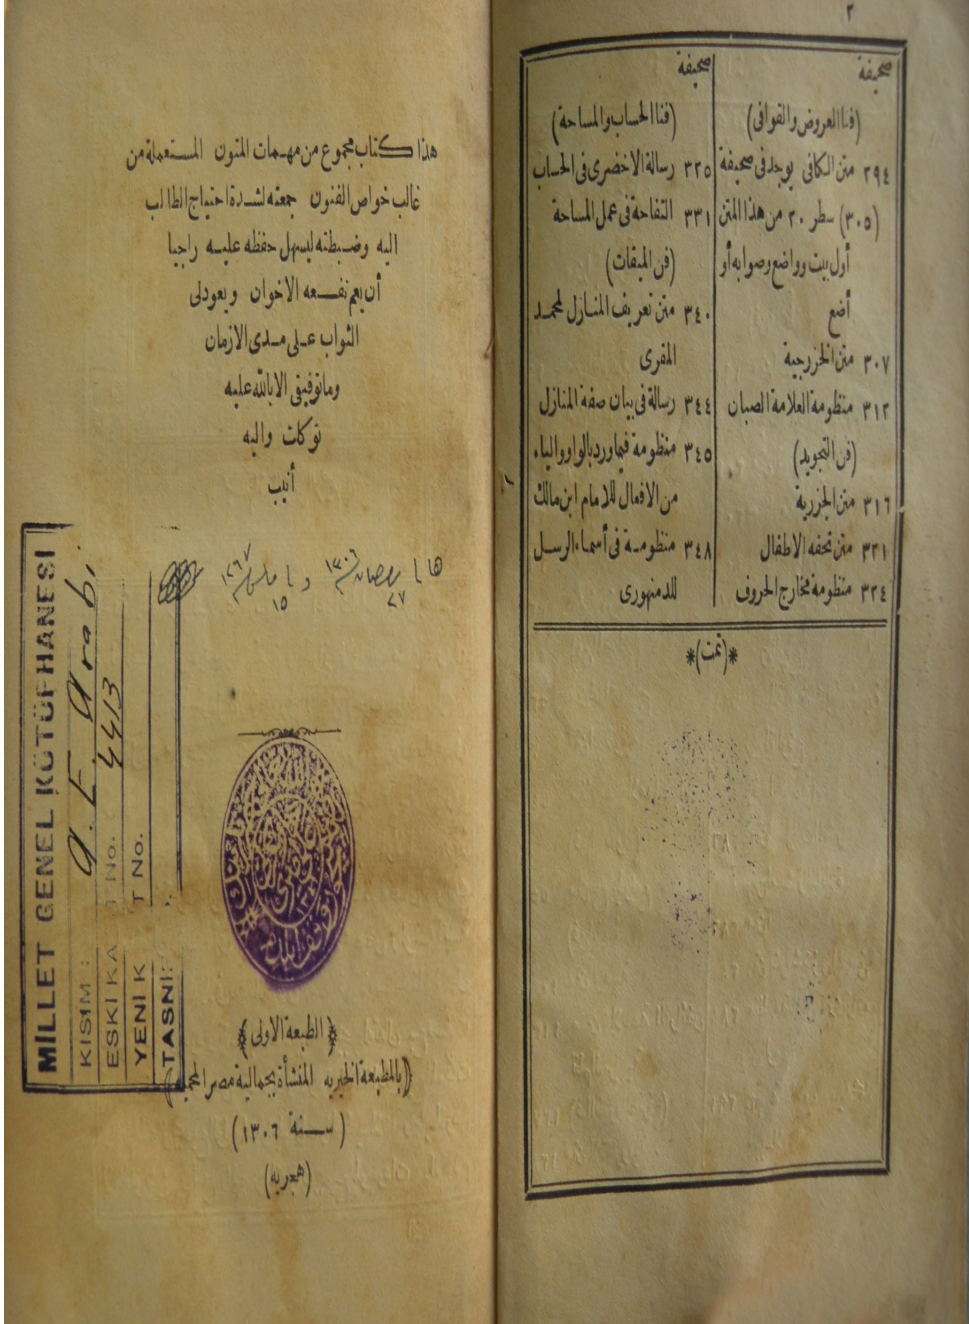 ٢
صحيفة
(فنا العروض والقوافى)
٢٩٤ متن الكافى يوجد فى صحيفة
(٣٠٥) سطر ٢٠ من هذا المتن
أول بيت وواضع وصوابه أو
أضع
٣٠٧ متن الخزرجية
٣١٢ منظومة العلامة الصبان
(فن التجويد)
٣١٦ متن الجزرية
٣٢١ متن تحفه الاطفال
٣٢٤ منظومة مخارج الحروف
صحيفة
(فنا الحساب والمساحة)
٣٢٥ رسالة الاخضرى فى الحساب
٣٣١ التفاحة فى عمل المساحة
(فن الميقات)
٣٤٠ متن تعريف المنازل لمحمد
المقرى
٣٤٤ رسالة فى بيان صفة المنازل
٣٤٥ منظومة فيما ورد بالواو والياء
من الافعال للامام ابن مالك
٣٤٨ منظومة فى أسماء الرسل
للدمنهورى
*(تمت)*
هذا كتاب مجموع من مهمات المتون المستعملة من
غالب خواص الفنون جمعته لشدة احتياج الطالب
اليه وضبطته ليسهل حفظه عليه راجيا
أن يعم نفعه الاخوان ويعود لى
الثواب على مدى الازمان
وما توفيقى الا بالله عليه
توكلت واليه
أنيب
١٥
٢٧
MİLLET GENEL KÜTÜPHANESİ
KISIM : A. E. Arab.
ESKİ KAYIT No. 4413
YENİ KAYIT No.
TASNİF
(الطبعة الاولى)
(بالمطبعة الخيريه المنشأة بجمالية مصر المحمية)
(سنة ١٣٠٦)
(هجريه)